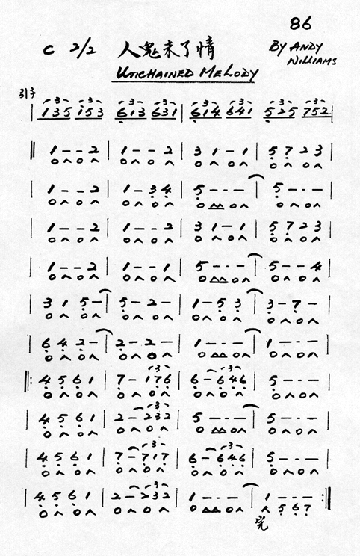 86
C 2/2 人鬼未了情 BY ANDY WILLIAMS
UNCHAINED MELODY
引子
135 153 | 613 631 | 614 641 | 525 752
‖ 1 - - 2 | 1 - - 2 | 3 1 - 1 | 5 7 2 3
| 1 - - 2 | 1 - 3 4 | 5 - - - | 5 - - -
| 1 - - 2 | 1 - - 2 | 3 1 - 1 | 5 7 2 3
| 1 - - 2 | 1 - - 1 | 5 - - - | 5 - - 4
| 3 1 5 - | 5 - 2 - | 1 - 5 3 | 3 - 7 -
| 6 4 2 - | 2 - 2 - | 1 - - - | 1 - - -
‖: 4 5 6 1 | 7 - 176 | 6 - 646 | 5 - - -
| 4 5 6 1 | 2 - 232 | 5 - - - | 5 - - -
| 4 5 6 1 | 7 - 717 | 6 - 646 | 5 - - -
| 4 5 6 1 | 2 - 232 | 1 - - - | 1 - - - :‖
5 6 7
完